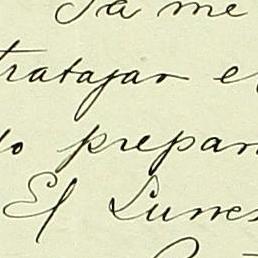 Ta me
tratajar e
lo prepar
El Lunes